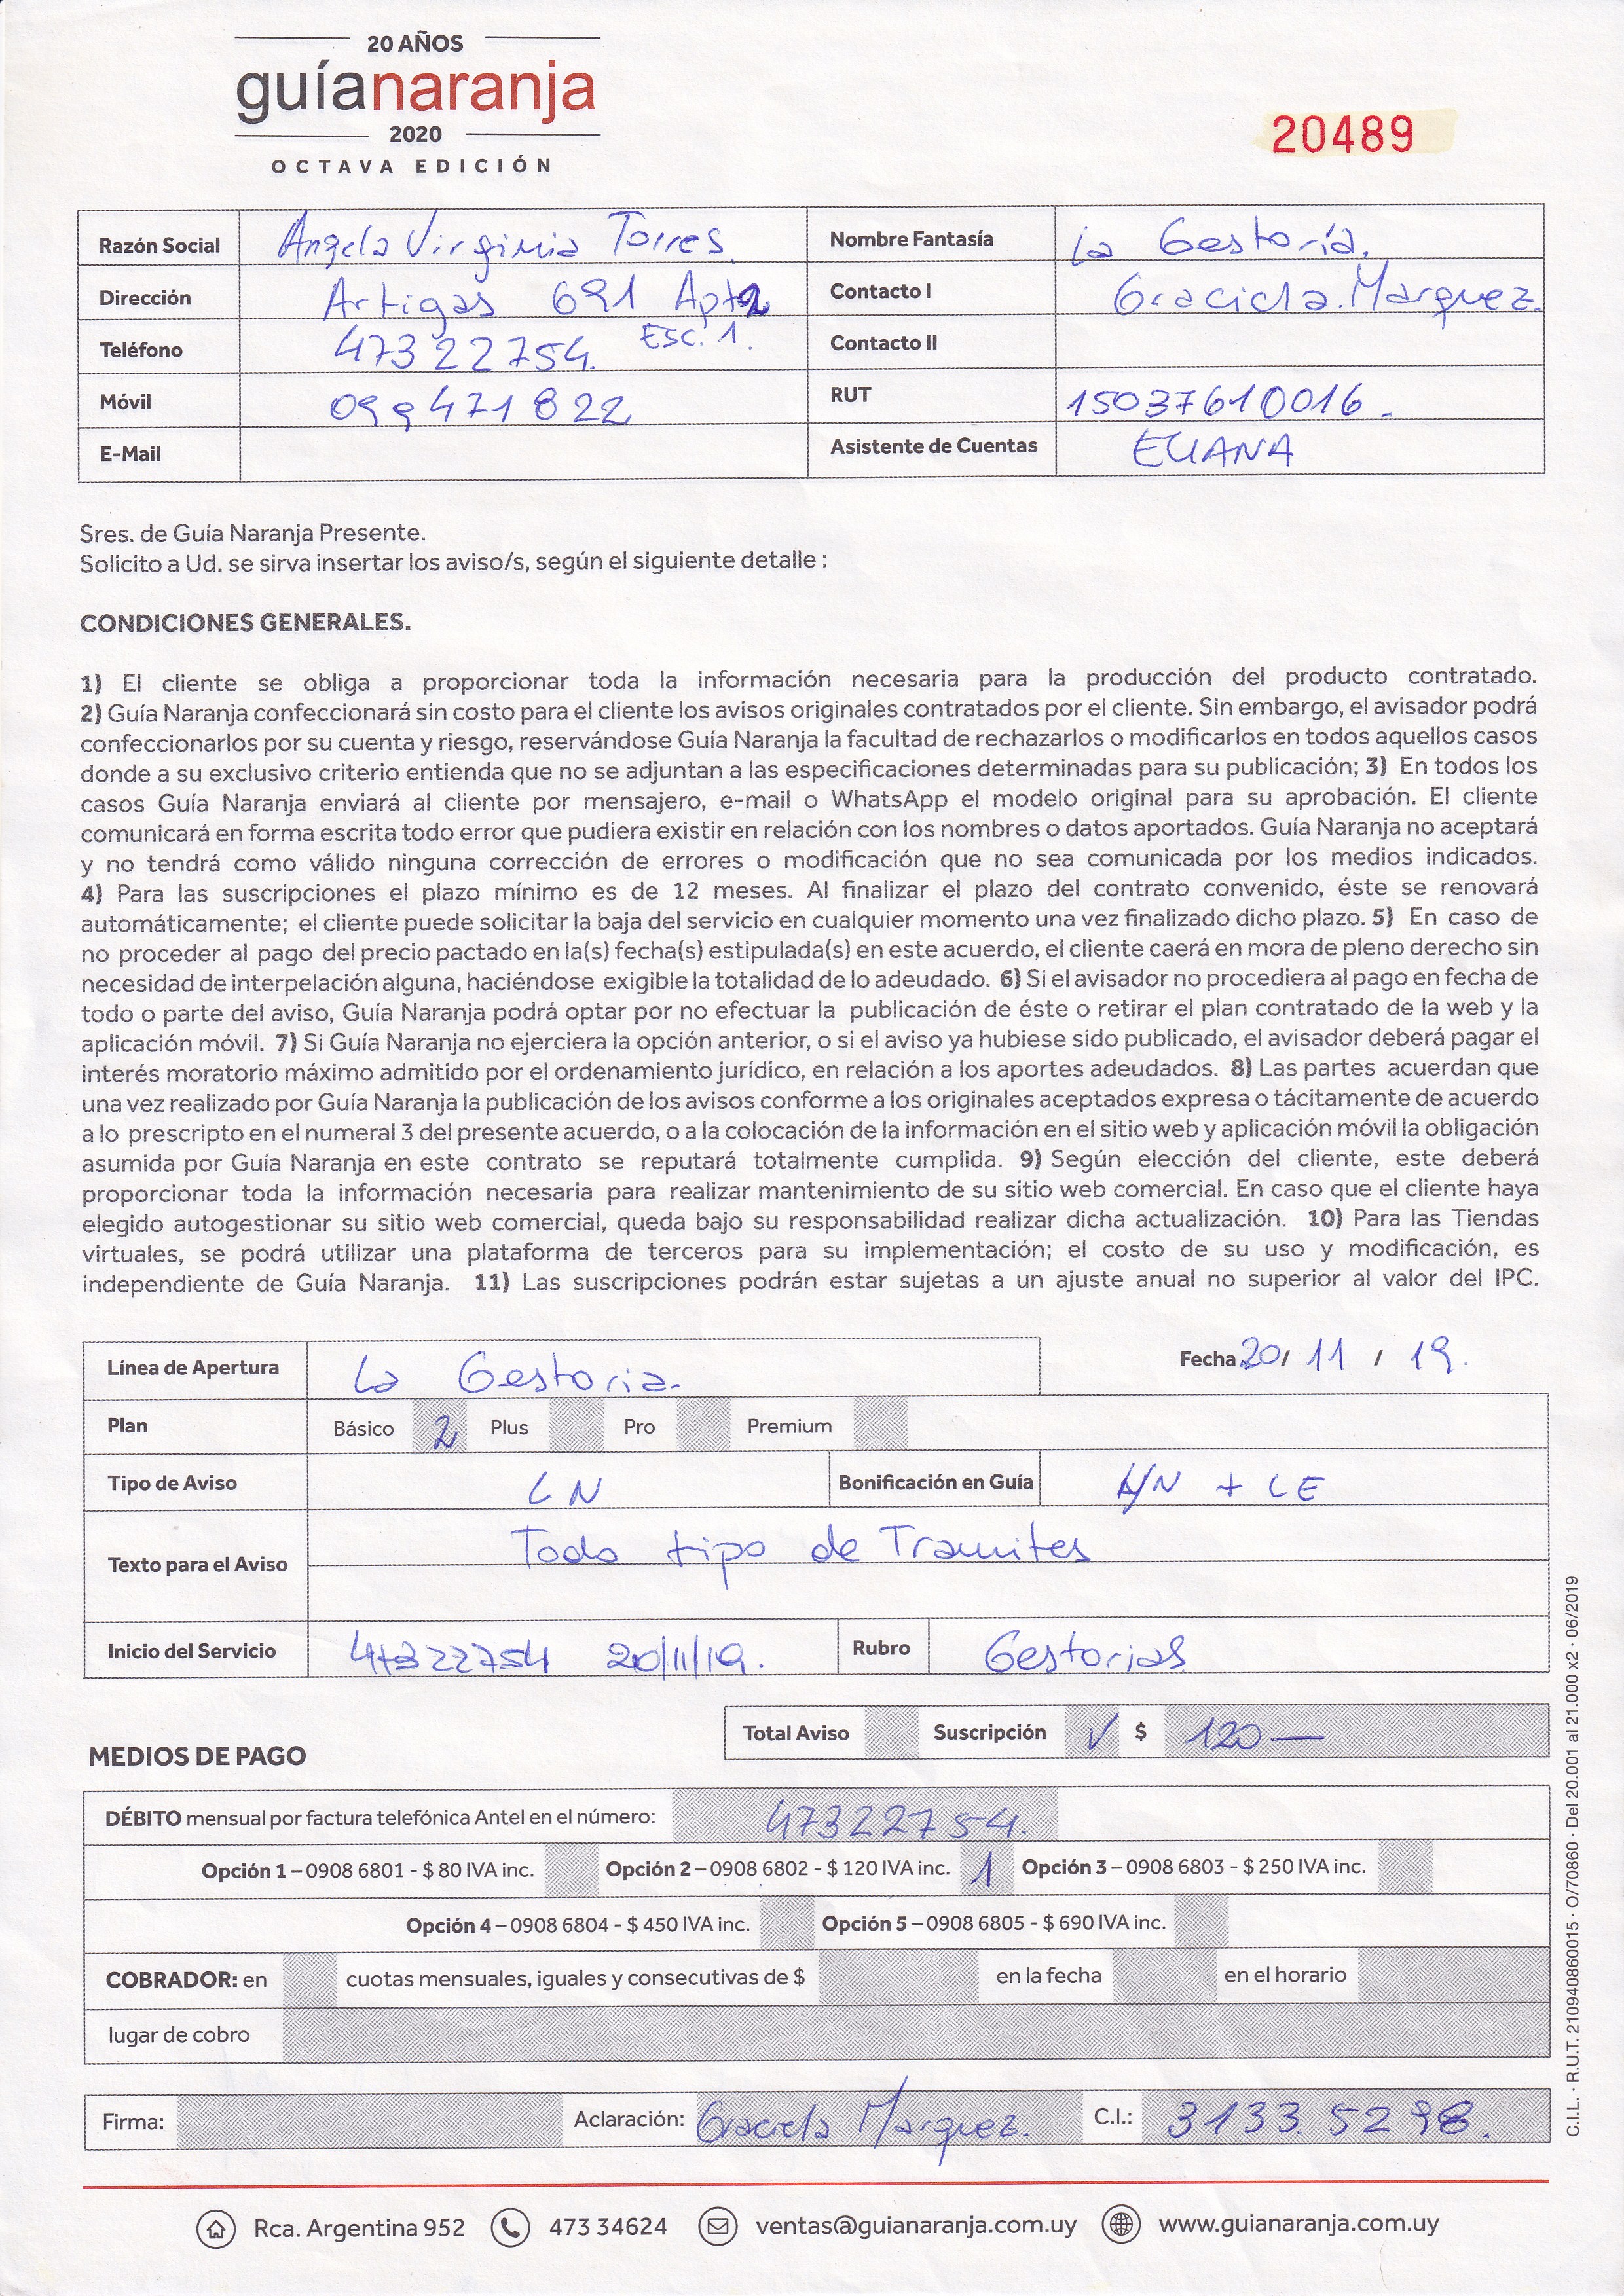 20 AÑOS
guíanaranja
2020
OCTAVA EDICIÓN
20489
Razón Social Angela Virginia Torres. Nombre Fantasía La Gestoría.
Dirección Artigas 691 Apto 2 Contacto I Graciela Marquez.
Esc. 1.
Teléfono 47322754. Contacto II
Móvil 099471822 RUT 15037610016.
E-Mail Asistente de Cuentas ELIANA
Sres. de Guía Naranja Presente.
Solicito a Ud. se sirva insertar los aviso/s, según el siguiente detalle :
CONDICIONES GENERALES.
1) El cliente se obliga a proporcionar toda la información necesaria para la producción del producto contratado.
2) Guía Naranja confeccionará sin costo para el cliente los avisos originales contratados por el cliente. Sin embargo, el avisador podrá
confeccionarlos por su cuenta y riesgo, reservándose Guía Naranja la facultad de rechazarlos o modificarlos en todos aquellos casos
donde a su exclusivo criterio entienda que no se adjuntan a las especificaciones determinadas para su publicación; 3) En todos los
casos Guía Naranja enviará al cliente por mensajero, e-mail o WhatsApp el modelo original para su aprobación. El cliente
comunicará en forma escrita todo error que pudiera existir en relación con los nombres o datos aportados. Guía Naranja no aceptará
y no tendrá como válido ninguna corrección de errores o modificación que no sea comunicada por los medios indicados.
4) Para las suscripciones el plazo mínimo es de 12 meses. Al finalizar el plazo del contrato convenido, éste se renovará
automáticamente; el cliente puede solicitar la baja del servicio en cualquier momento una vez finalizado dicho plazo. 5) En caso de
no proceder al pago del precio pactado en la(s) fecha(s) estipulada(s) en este acuerdo, el cliente caerá en mora de pleno derecho sin
necesidad de interpelación alguna, haciéndose exigible la totalidad de lo adeudado. 6) Si el avisador no procediera al pago en fecha de
todo o parte del aviso, Guía Naranja podrá optar por no efectuar la publicación de éste o retirar el plan contratado de la web y la
aplicación móvil. 7) Si Guía Naranja no ejerciera la opción anterior, o si el aviso ya hubiese sido publicado, el avisador deberá pagar el
interés moratorio máximo admitido por el ordenamiento jurídico, en relación a los aportes adeudados. 8) Las partes acuerdan que
una vez realizado por Guía Naranja la publicación de los avisos conforme a los originales aceptados expresa o tácitamente de acuerdo
a lo prescripto en el numeral 3 del presente acuerdo, o a la colocación de la información en el sitio web y aplicación móvil la obligación
asumida por Guía Naranja en este contrato se reputará totalmente cumplida. 9) Según elección del cliente, este deberá
proporcionar toda la información necesaria para realizar mantenimiento de su sitio web comercial. En caso que el cliente haya
elegido autogestionar su sitio web comercial, queda bajo su responsabilidad realizar dicha actualización. 10) Para las Tiendas
virtuales, se podrá utilizar una plataforma de terceros para su implementación; el costo de su uso y modificación, es
independiente de Guía Naranja. 11) Las suscripciones podrán estar sujetas a un ajuste anual no superior al valor del IPC.
Línea de Apertura La Gestoria. Fecha 20/ 11 / 19.
Plan Básico 2 Plus Pro Premium
Tipo de Aviso LN Bonificación en Guía + LE
Texto para el Aviso Todo tipo de Tramites
Inicio del Servicio 47322754 20/11/19. Rubro Gestorias
Total Aviso Suscripción ✓ $ 120 —
MEDIOS DE PAGO
DÉBITO mensual por factura telefónica Antel en el número: 47322754.
Opción 1 – 0908 6801 - $ 80 IVA inc. Opción 2 – 0908 6802 - $ 120 IVA inc. 1 Opción 3 – 0908 6803 - $ 250 IVA inc.
Opción 4 – 0908 6804 - $ 450 IVA inc. Opción 5 – 0908 6805 - $ 690 IVA inc.
COBRADOR: en cuotas mensuales, iguales y consecutivas de $ en la fecha en el horario
lugar de cobro
Firma: Aclaración: Graciela Marquez. C.I.: 3133.5298.
C.I.L. · R.U.T. 210940860015 · O/70860 · Del 20.001 al 21.000 x2 · 06/2019
Rca. Argentina 952 473 34624 ventas@guianaranja.com.uy www.guianaranja.com.uy